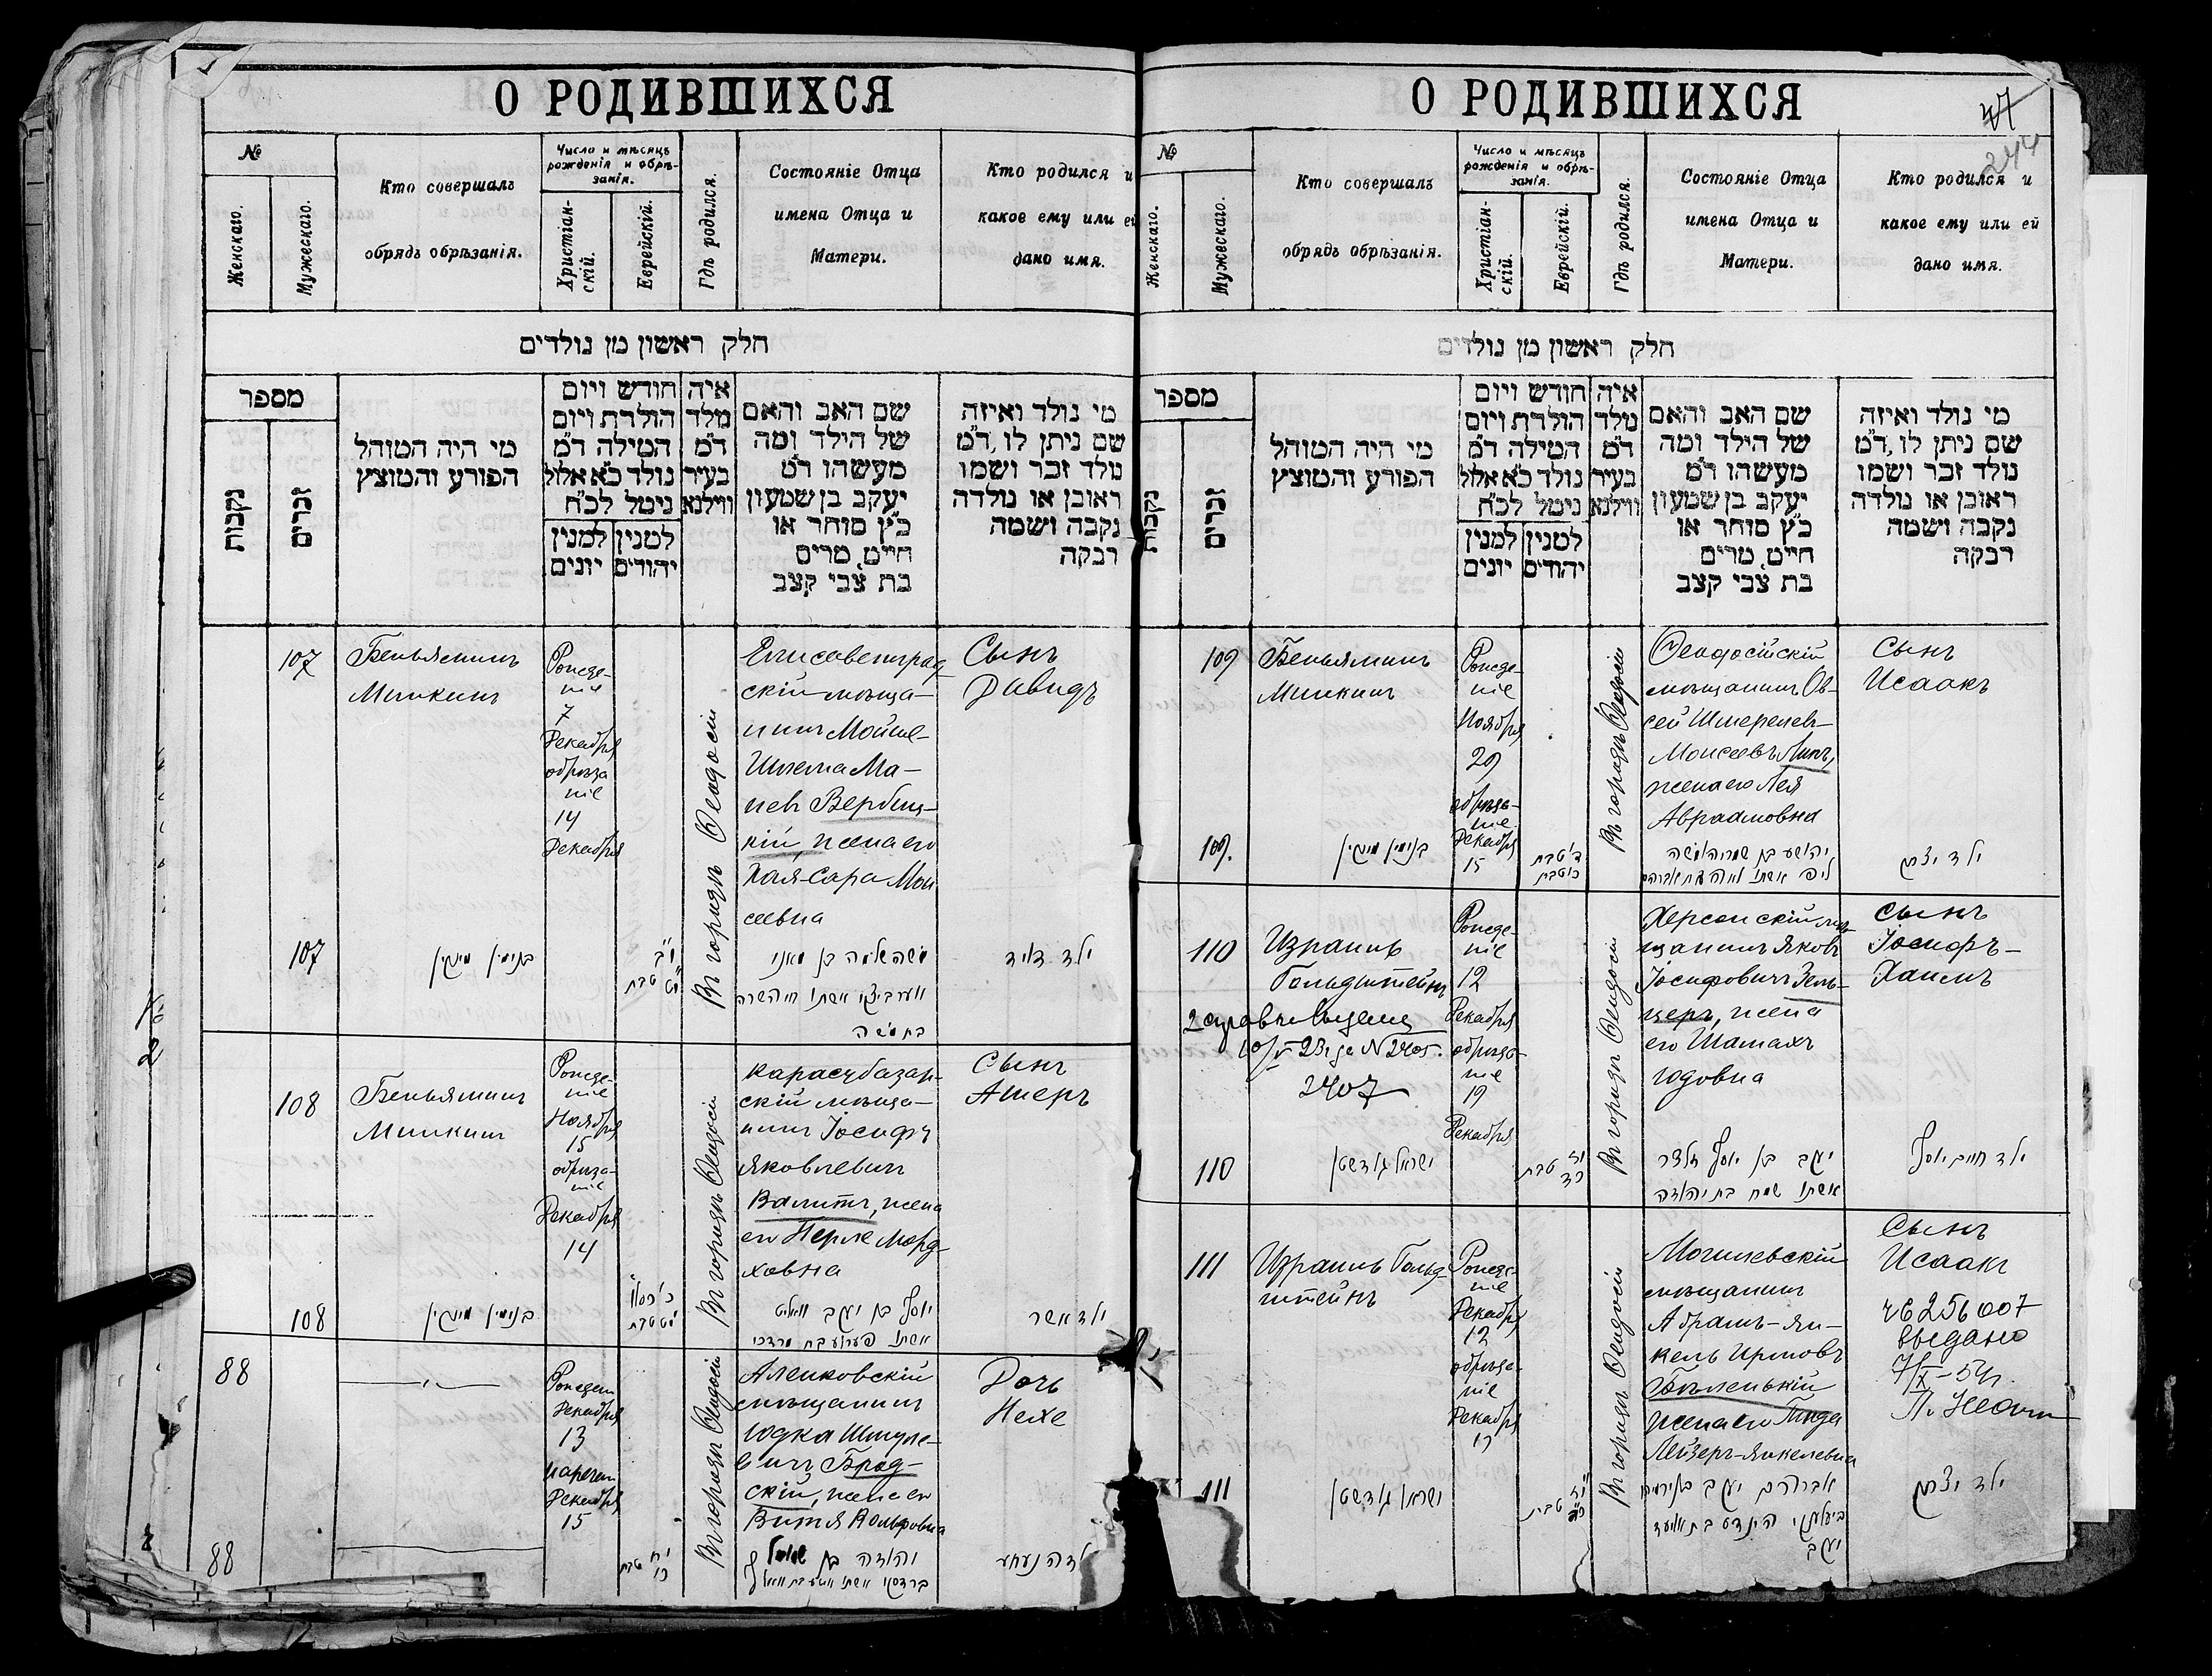 О РОДИВШИХСЯ
№
Женскаго.
Мужескаго.
Кто совершалъ
обрядъ обрѣзанія.
Число и мѣсяцъ
рожденія и обрѣ-
занія.
Христіан-
скій.
Еврейскій.
Гдѣ родился.
Состояніе Отца
имена Отца и
Матери.
Кто родился и
какое ему или ей
дано имя.
חלק ראשון מן נולדים
מספר
נקבות
זכרים
מי היה המוהל
הפורע והמוצץ
חודש ויום
הולדת ויום
המילה ד״מ
נולד כ״א אלול
נימל לכ״ח
למנין
יונים
למנין
יהודים
איה
מלד
ד״מ
בעיר
ווילנא
שם האב והאם
של הילד ומה
מעשהו ד״מ
יעקב בן שמעון
כ״ץ סוחר או
חייט, מרים
בת צבי קצב
מי נולד ואיזה
שם ניתן לו, ד״מ
נולד זכר ושמו
ראובן או נולדה
נקבה ושמה
רבקה
107
Беньяминъ
Минкинъ
Рожде-
ніе
7
Декабря
обрѣза
ніе
14
Декабря
Въ городѣ Ѳеодосіи
Елисаветград-
скій мѣща-
нинъ Мойше-
Шлема Ма-
невъ Вербиц-
кій, жена его
Хая-Сара Мои
сеевна
Сынъ
Давидъ
107
בנימין מינקין
י״ב
י״ט טבת
משה שלמה בן מאני
ווערביצקי אשתו חיה שרה
בת משה
ילד דוד
108
Беньяминъ
Минкинъ
Рожде-
ніе
Ноября
15
обрѣза-
ніе
Декабря
14
Въ городѣ Ѳеодосіи
Карасубазар-
скій мѣща-
нинъ Іосифъ
Яковлевичъ
Валитъ, жена
его Перле Морд-
ховна
Сынъ
Ашеръ
108
בנימין מינקין
י״ט טבת
יוסף בן יעקב וואליט
אשתו פערלע בת מרדכי
ילד אשר
88
Рожден
Декабря
13
наречен
Декабря
15
Въ городѣ Ѳеодосіи
Алешковскій
мѣщанинъ
Юдка Шмуле-
вичъ Брод-
скій, жена его
Витя Вольфовна
Дочь
Нехе
88
י״ח
כ׳ טבת
יהודה בן שמואל
ילדה נעחע
О РОДИВШИХСЯ
47
244
№
Женскаго.
Мужескаго.
Кто совершалъ
обрядъ обрѣзанія.
Число и мѣсяцъ
рожденія и обрѣ-
занія.
Христіан-
скій.
Еврейскій.
Гдѣ родился.
Состояніе Отца
имена Отца и
Матери.
Кто родился и
какое ему или ей
дано имя.
חלק ראשון מן נולדים
מספר
נקבות
זכרים
מי היה המוהל
הפורע והמוצץ
חודש ויום
הולדת ויום
המילה ד״מ
נולד כ״א אלול
נימל לכ״ח
למנין
יונים
למנין
יהודים
איה
מלד
ד״מ
בעיר
ווילנא
שם האב והאם
של הילד ומה
מעשהו ד״מ
יעקב בן שמעון
כ״ץ סוחר או
חייט, מרים
בת צבי קצב
מי נולד ואיזה
שם ניתן לו, ד״מ
נולד זכר ושמו
ראובן או נולדה
נקבה ושמה
רבקה
109
Беньяминъ
Минкинъ
Рожде-
ніе
Ноября
29
обрѣза-
ніе
Декабря
15
Въ городѣ Ѳеодосіи
Ѳеодосійскій
мѣщанинъ Ов-
сей Шмерелев-
Моисеевъ Липъ,
жена его Лея
Авраамовна
Сынъ
Исаакъ
109.
בנימין מינקין
ד׳ טבת
כ׳ טבת
ילד יצחק
110
Израиль
Гольдштейнъ
2 справки выданы
10/V 23 г за № 2405.
2407
Рожде-
ніе
12
Декабря
обрѣза-
ніе
19
Декабря
Въ городѣ Ѳеодосіи
Херсонскій мѣ-
щанинъ Яковъ
Іосифовичъ Зель-
церъ, жена
его Шамахъ
Юдовна
Сынъ
Іосифъ-
Хаимъ
110
ישראל גולדשטיין
י״ז
כ״ד טבת
יעקב בן יוסף זלצר
אשתו שמח בת יהודה
ילד חיים יוסף
111
Израиль Гольд-
штейнъ
Рожде-
ніе
Декабря
12
обрѣза-
ніе
Декабря
19
Въ городѣ Ѳеодосіи
Могилевскій
мѣщанинъ
Абрамъ-Ян-
кель Ирмовъ
Бѣленькій
жена его Гинда
Лейзеръ-Янкелевна
Сынъ
Исаакъ
чб 256007
выдано
7/X-54г.
111
ישראל גולדשטיין
י״ז
כ״ד טבת
אברהם יעקב בן ירמיהו
ביעלענקי הינדע בת לייזער
יעקב
ילד יצחק